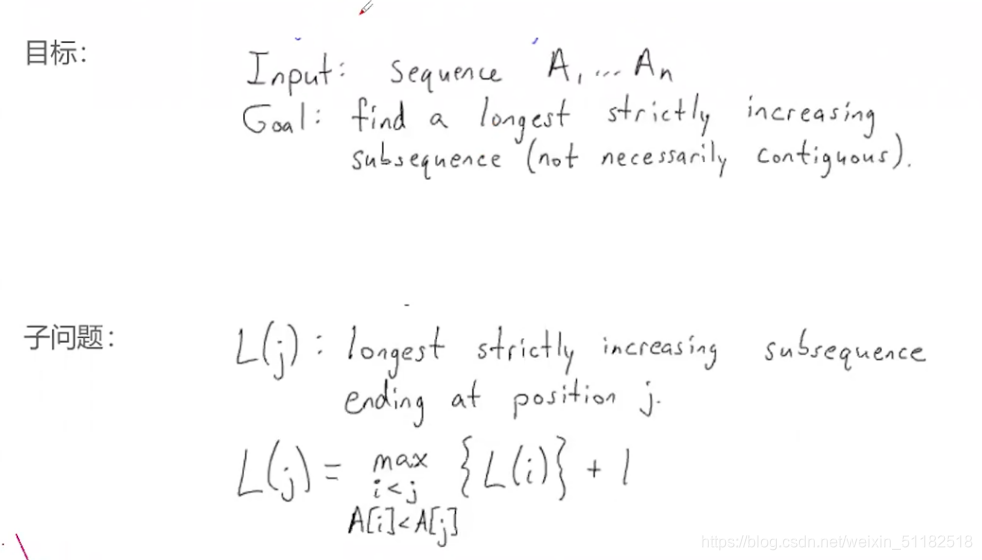 目标：
Input: sequence A₁ ... Aₙ
Goal: find a longest strictly increasing
subsequence (not necessarily contiguous).
子问题：
L(j): longest strictly increasing subsequence
ending at position j.
L(j) = max {L(i)} + 1
i<j
A[i]<A[j]
https://blog.csdn.net/weixin_51182518